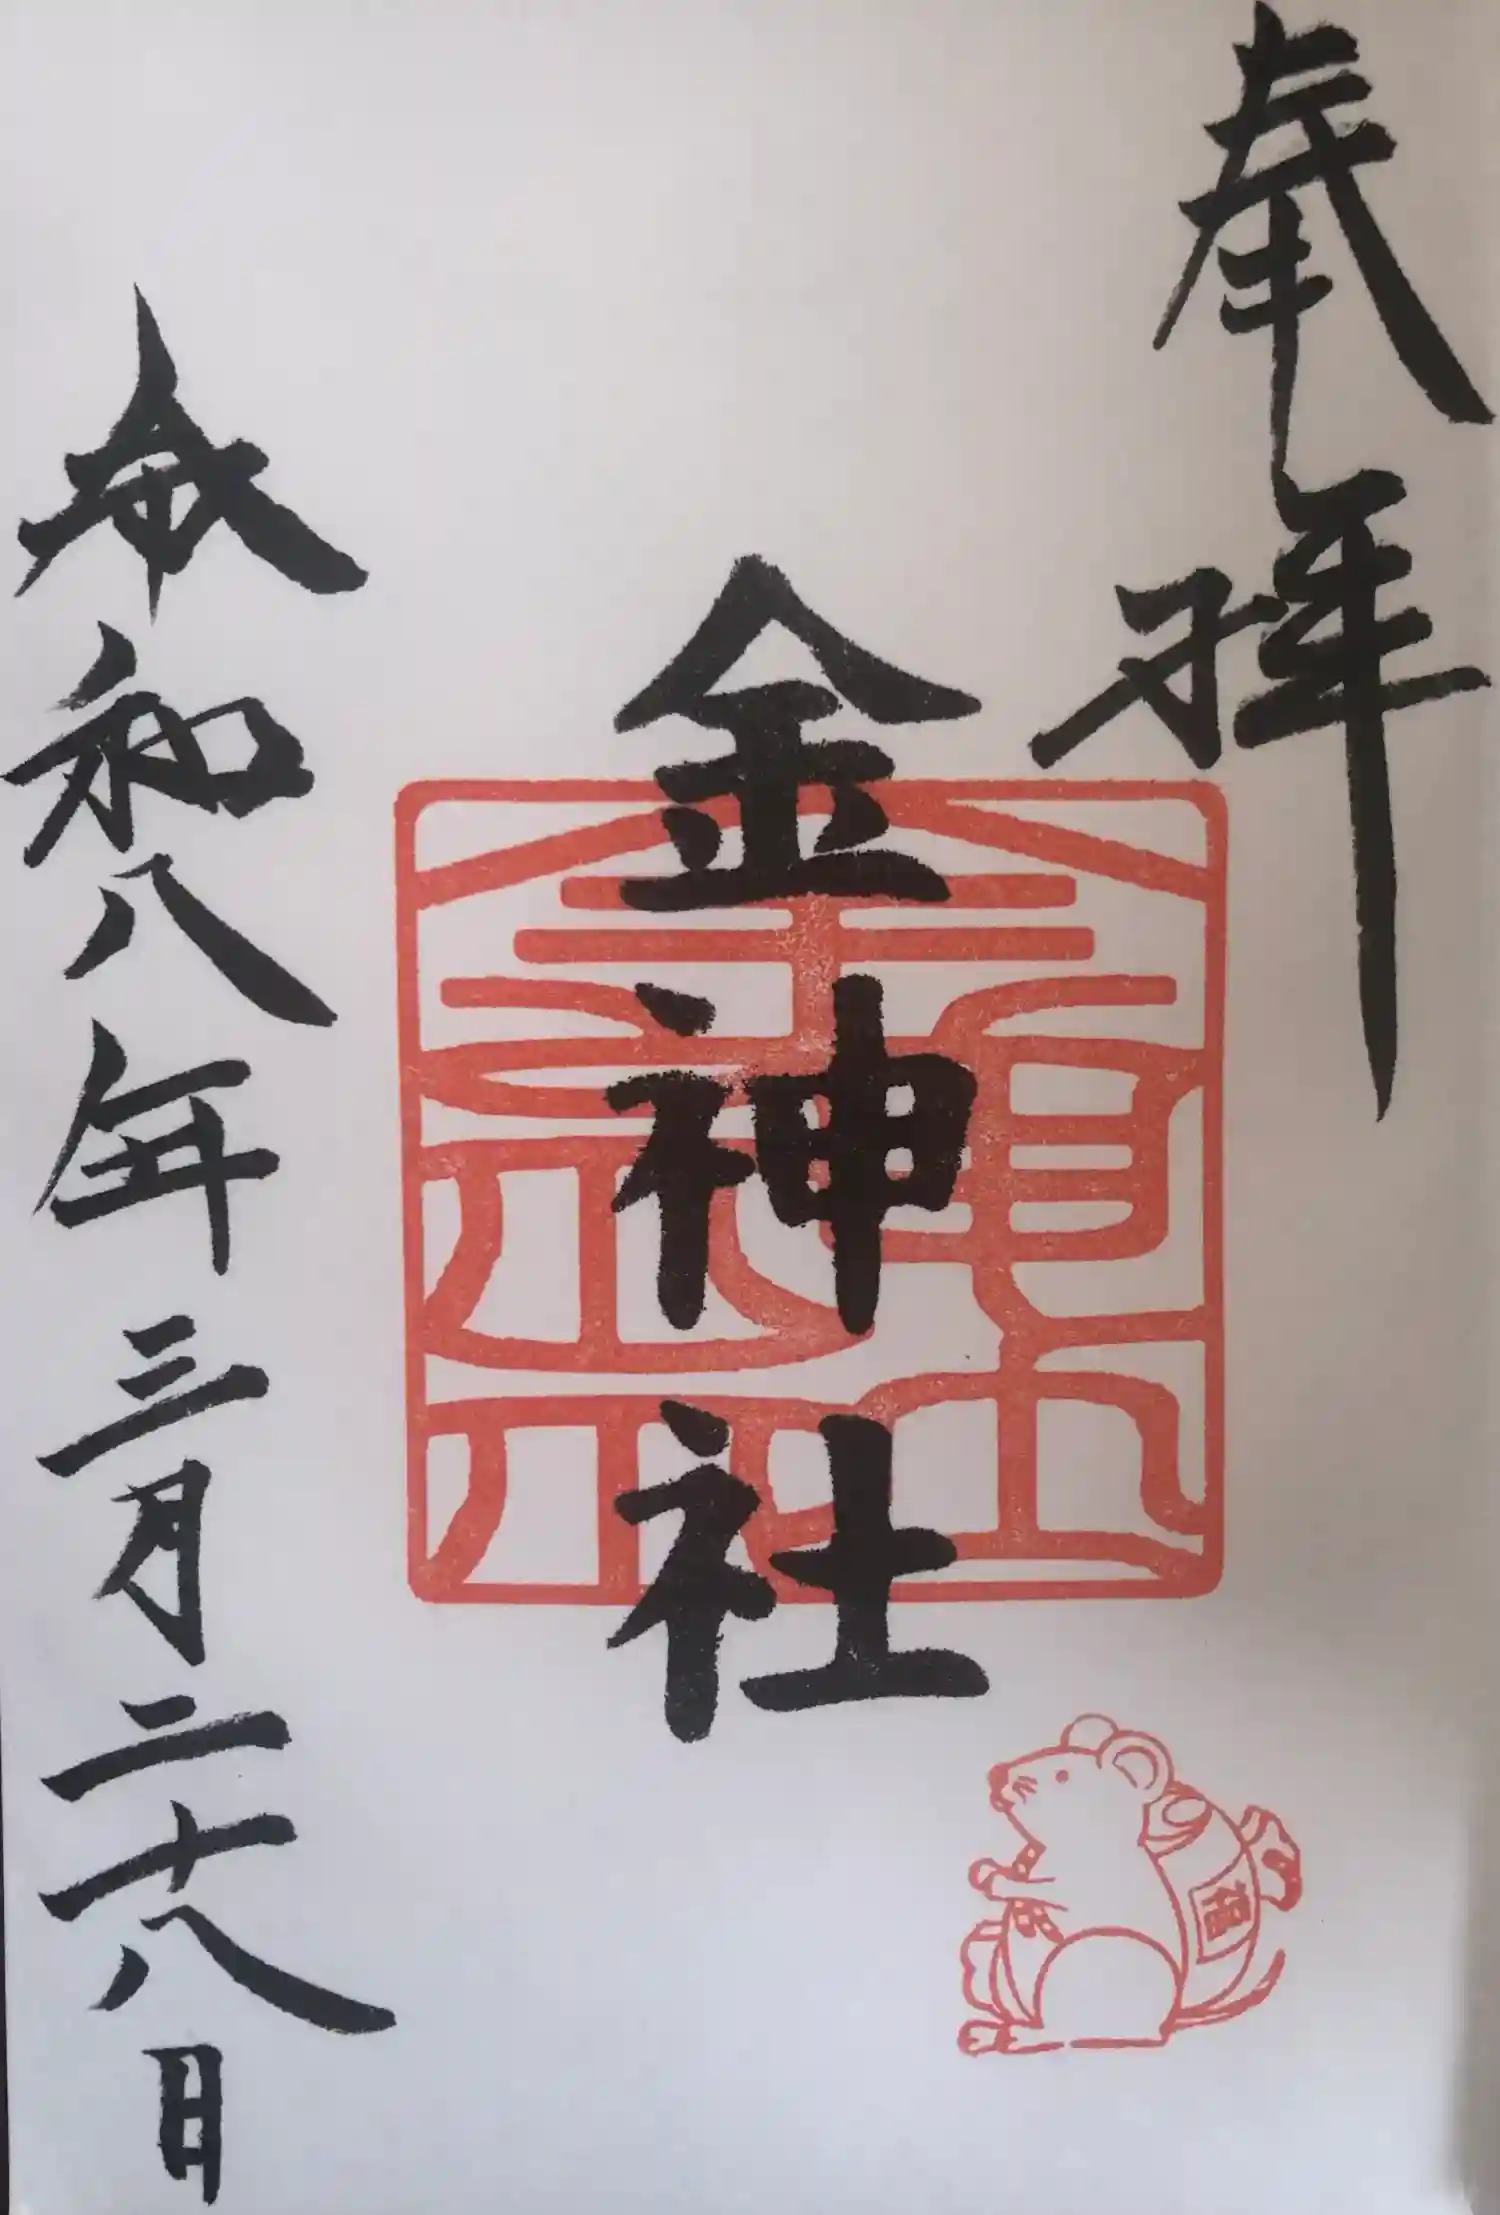 奉拝
金神社
令和八年三月二十八日
福